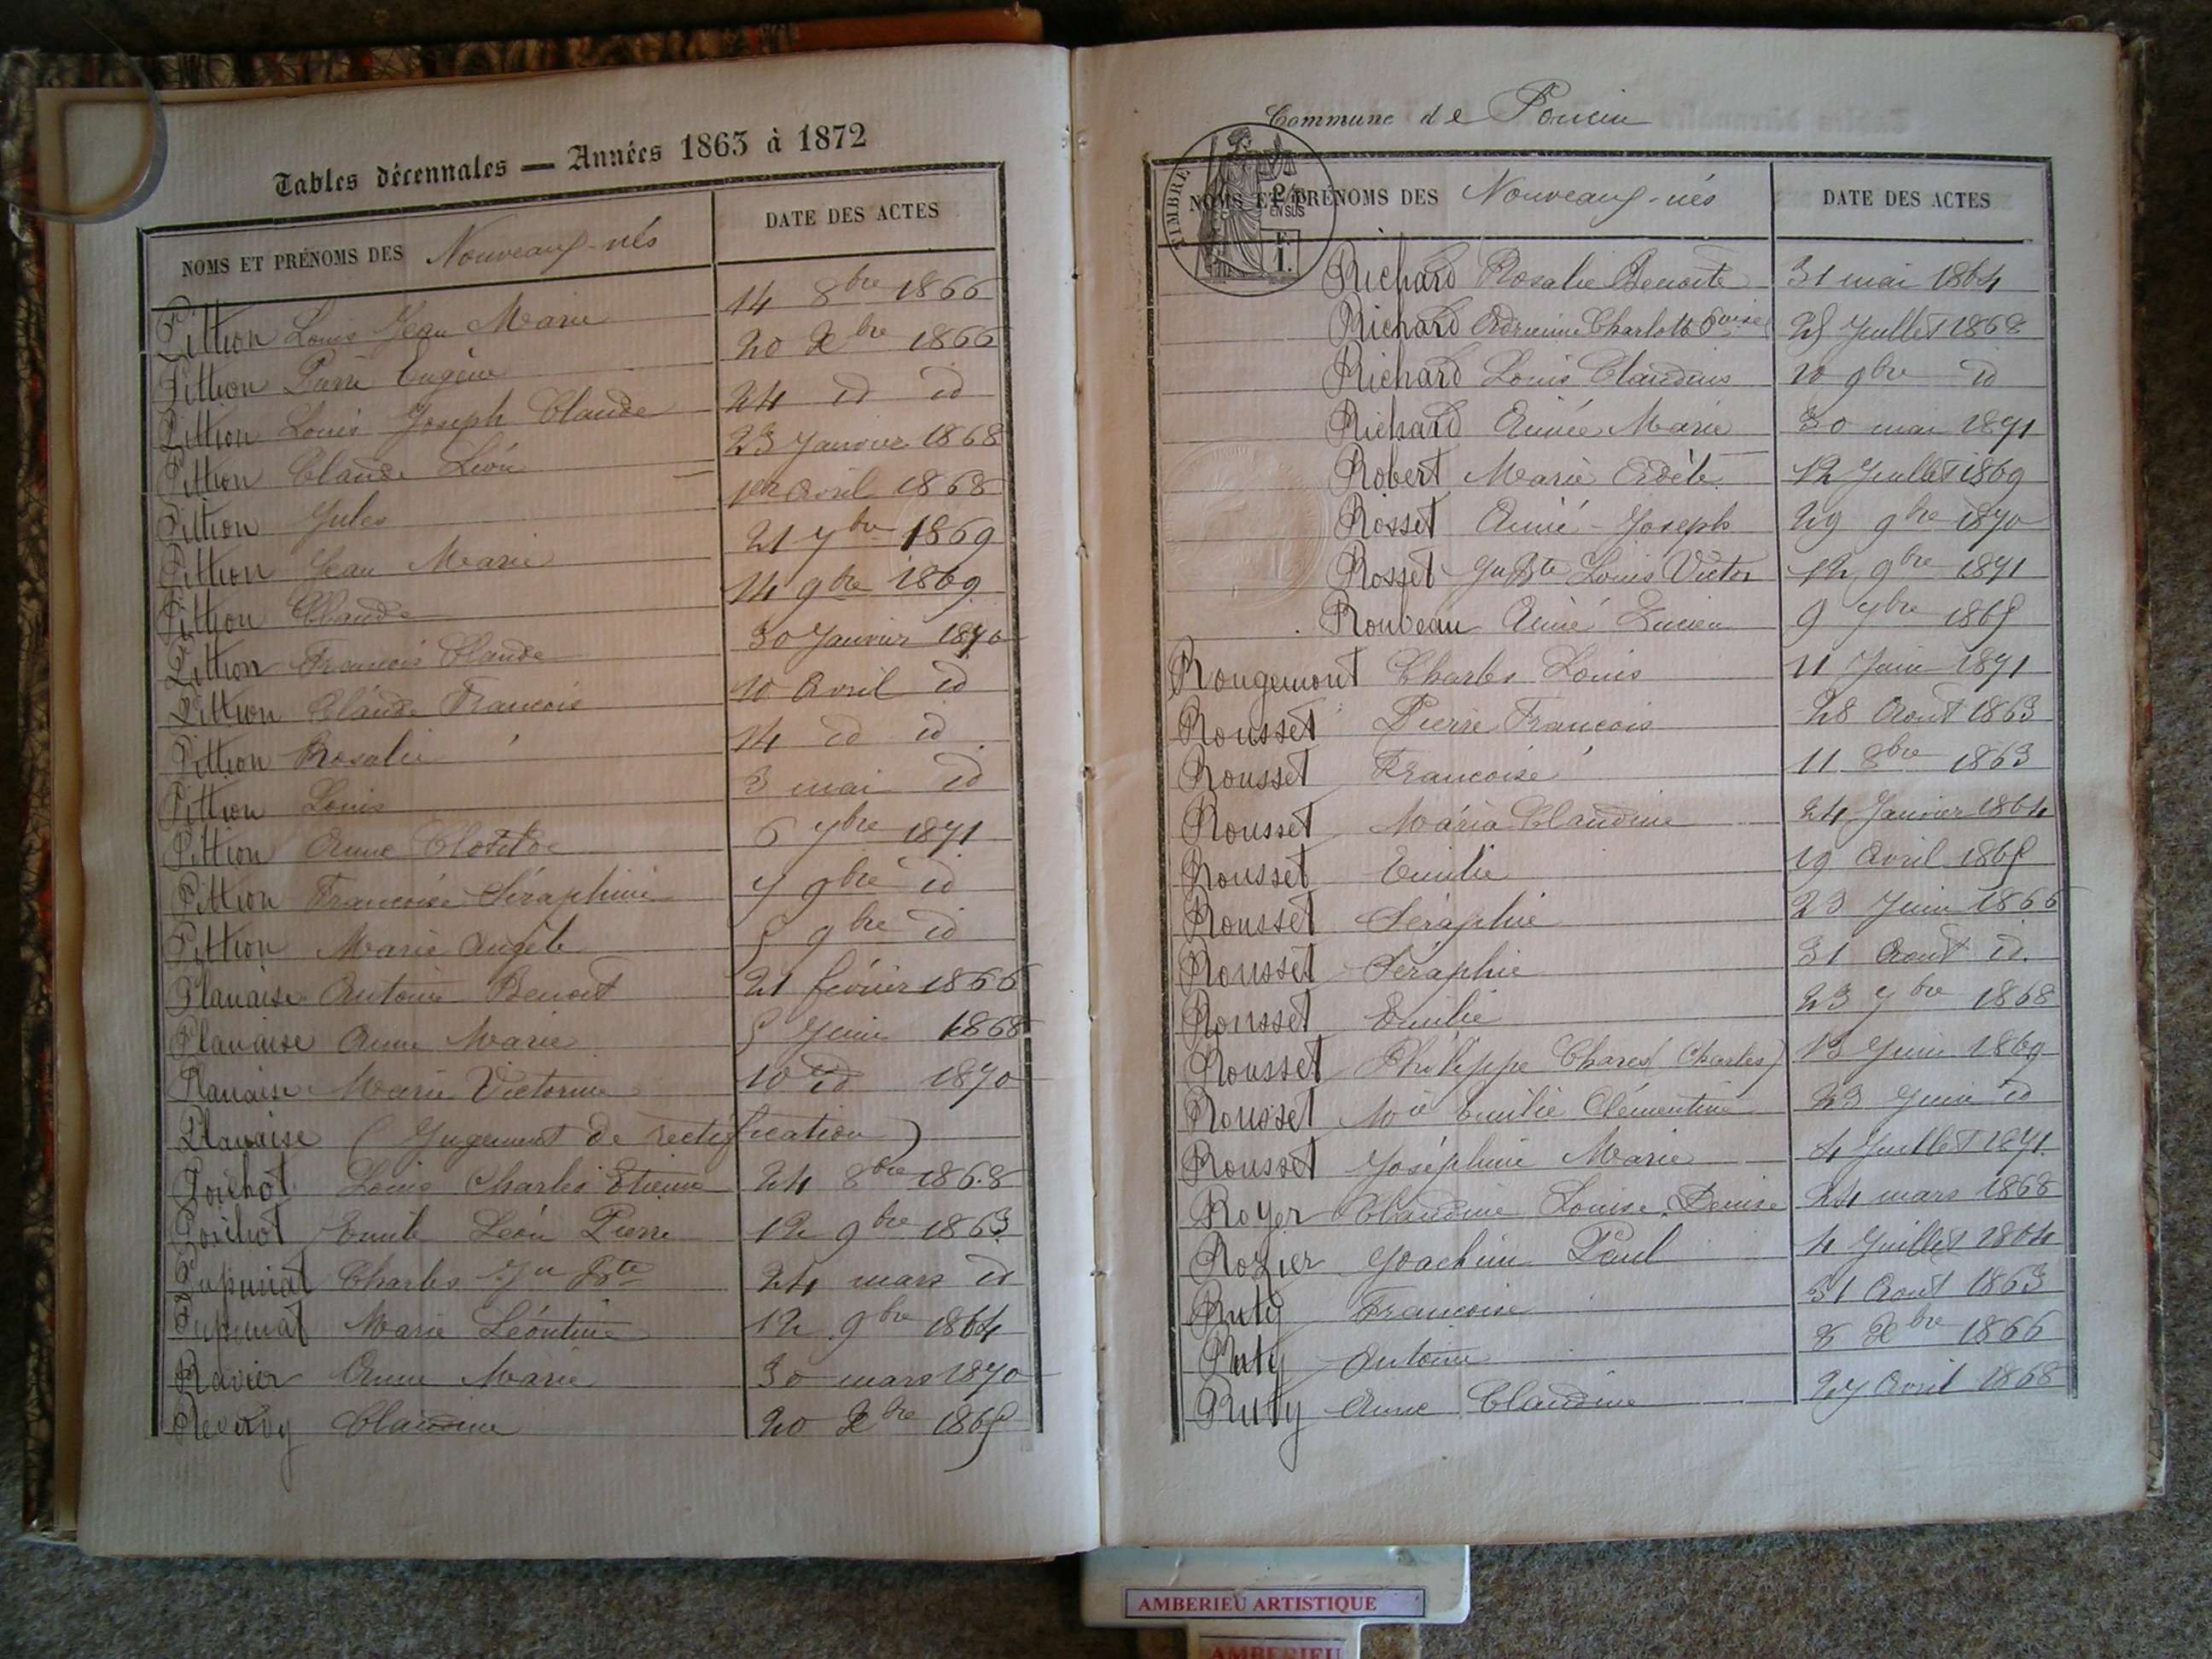 Tables décennales — Années 1863 à 1872
NOMS ET PRÉNOMS DES Nouveaux-nés DATE DES ACTES
Pittion Louis Jean Marie 14 8bre 1866
Pittion Pierre Eugène 20 Xbre 1866
Pittion Louis Joseph Claude 24 id id
Pittion Claude Léon 23 Janvier 1868
Pittion Jules 1er Avril 1868
Pittion Jean Marie 21 7bre 1869
Pittion Claude 14 9bre 1869
Pittion François Claude 30 Janvier 1870
Pittion Claude François 10 Avril id
Pittion Rosalie 14 id id
Pittion Louis 3 mai id
Pittion Anne Clotilde 6 7bre 1871
Pittion Françoise Séraphine 7 9bre id
Pittion Marie Angèle 5 9bre id
Planaise Antoine Benoit 21 février 1866
Planaise Anne Marie 5 Juin 1868
Planaise Marie Victorine 10 id 1870
Planaise (Jugement de rectification)
Poichot Louis Charles Etienne 24 8bre 1868
Poichot Emile Léon Pierre 12 9bre 1863
Pupunat Charles Jn Bte 24 mars id
Pupunat Marie Léontine 12 9bre 1864
Ravier Anne Marie 30 mars 1870
Claudine 20 Xbre 1865
Commune de Poncin
TIMBRE
2/10 EN SUS
1 F.
NOMS ET PRÉNOMS DES Nouveaux-nés DATE DES ACTES
Richard Rosalie Benoite 31 mai 1864
Richard Adrienne Charlotte 25 Juillet 1868
Richard Louis Claudius 10 9bre id
Richard Aimée Marie 30 mai 1871
Robert Marie Adèle 12 Juillet 1869
Rosset Aimé-Joseph 29 9bre 1870
Rosset Jn Bte Louis Victor 12 9bre 1871
Roubeau Aimé Lucien 9 7bre 1865
Rougemont Charles Louis 11 Juin 1871
Rousset Pierre François 28 Aout 1863
Rousset Françoise 11 8bre 1863
Rousset Maria Claudine 24 Janvier 1864
Rousset Emilie 19 Avril 1865
Rousset Séraphie 23 Juin 1866
Rousset Séraphie 31 Aout id.
Rousset Emilie 23 7bre 1868
Rousset Philippe Chares (Charles) 13 Juin 1869
Rousset Mie Emilie Clémentine 23 Juin id
Rousset Joséphine Marie 4 Juillet 1871
Royer Claudine Louise Denise 24 mars 1868
Rozier Joachim Paul 4 Juillet 1864
Ruty Françoise 31 Aout 1863
Ruty Antoine 8 Xbre 1866
Ruty Anne Claudine 27 Avril 1868
AMBERIEU ARTISTIQUE
AMBERIEU